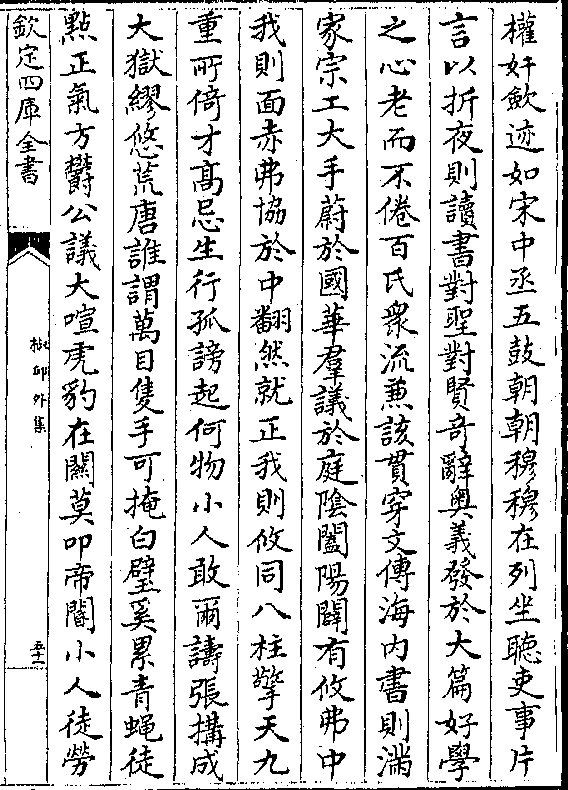 權奸歛迹如宋中丞五鼓朝朝穆穆在列坐聽吏事片
言以折夜則讀書對聖對賢竒辭奥義發於大篇好學
之心老而不倦百氏衆流兼該貫穿文傳海内書則滿
家宗工大手蔚於國華羣議於庭陰闔陽闢有攸弗中
我則面赤弗協於中翻然就正我則攸同八柱擎天九
重所倚才髙忌生行孤謗起何物小人敢爾譸張搆成
大獄繆悠荒唐誰謂萬目隻手可掩白璧奚累青蝇徒
點正氣方欝公議大喧虎豹在闗莫叩帝閽小人徒勞
欽定四庫全書
外集